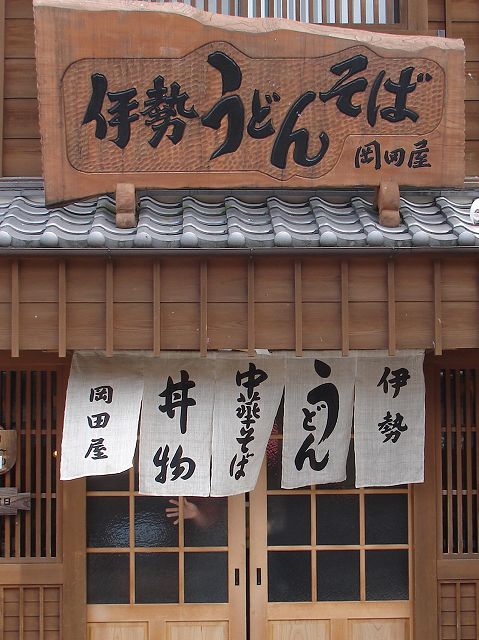 伊勢うどんそば
岡田屋
伊勢
うどん
中華そば
丼物
岡田屋